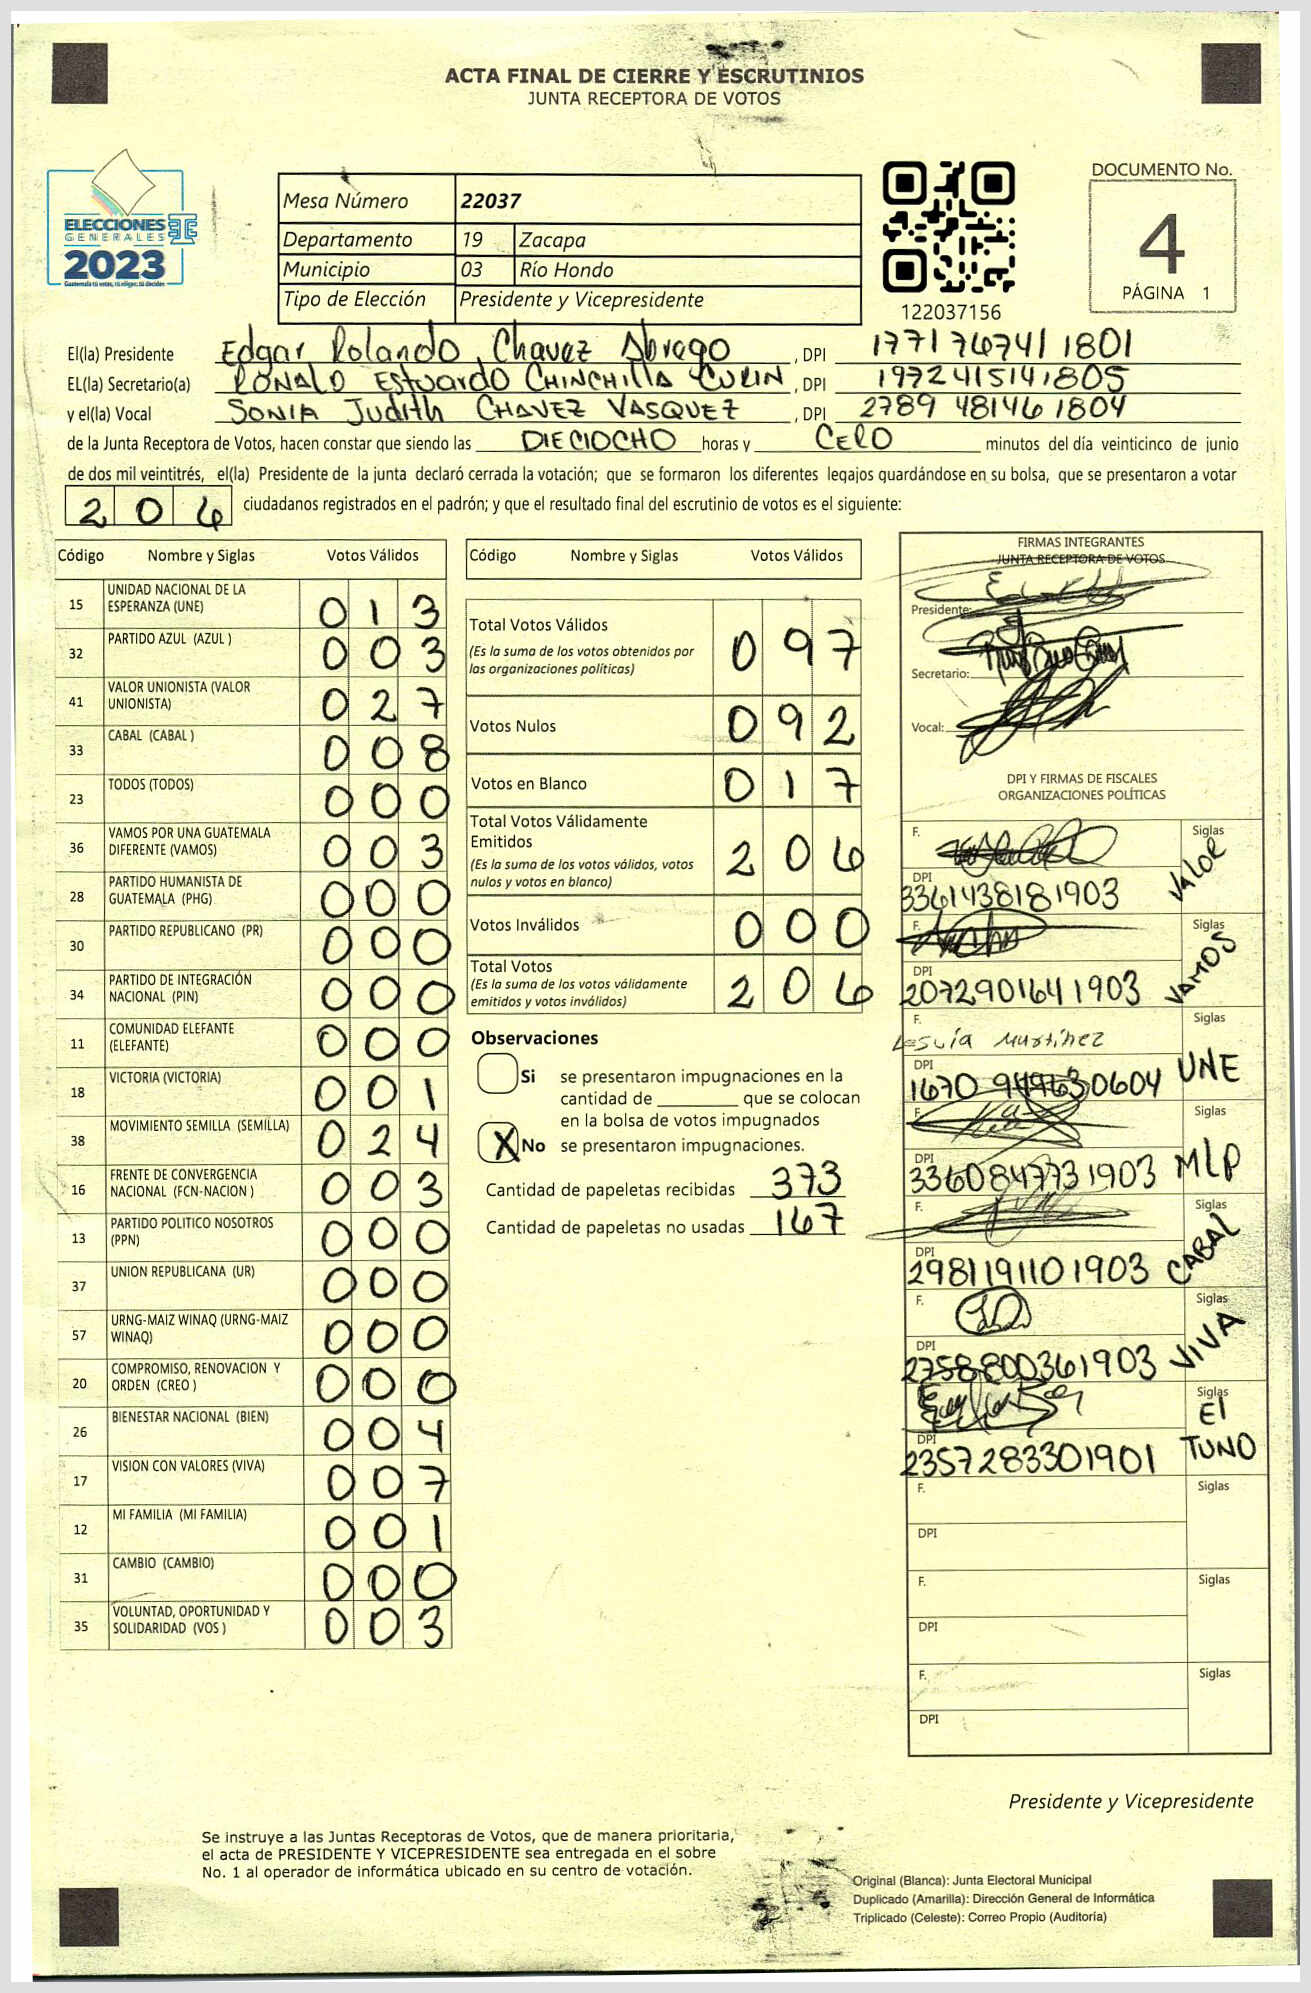 ACTA FINAL DE CIERRE Y ESCRUTINIOS
JUNTA RECEPTORA DE VOTOS
ELECCIONES
GENERALES
2023
Guatemala tú votas, tú eliges, tú decides
Mesa Número 22037
Departamento 19 Zacapa
Municipio 03 Río Hondo
Tipo de Elección Presidente y Vicepresidente
122037156
DOCUMENTO No.
4
PÁGINA 1
El(la) Presidente Edgar Rolando Chavez Abrego, DPI 1771767411801
EL(la) Secretario(a) RONALD Estuardo CHINCHILLA, DPI 1972415141805
y el(la) Vocal SONIA Judith CHAVEZ VASQUEZ, DPI 2789 48146 1804
de la Junta Receptora de Votos, hacen constar que siendo las DIECIOCHO horas y CERO minutos del día veinticinco de junio
de dos mil veintitrés, el(la) Presidente de la junta declaró cerrada la votación; que se formaron los diferentes legajos guardándose en su bolsa, que se presentaron a votar
206 ciudadanos registrados en el padrón; y que el resultado final del escrutinio de votos es el siguiente:
Código Nombre y Siglas Votos Válidos
15 UNIDAD NACIONAL DE LA ESPERANZA (UNE) 013
32 PARTIDO AZUL (AZUL ) 003
41 VALOR UNIONISTA (VALOR UNIONISTA) 027
33 CABAL (CABAL ) 008
23 TODOS (TODOS) 000
36 VAMOS POR UNA GUATEMALA DIFERENTE (VAMOS) 003
28 PARTIDO HUMANISTA DE GUATEMALA (PHG) 000
30 PARTIDO REPUBLICANO (PR) 000
34 PARTIDO DE INTEGRACIÓN NACIONAL (PIN) 000
11 COMUNIDAD ELEFANTE (ELEFANTE) 000
18 VICTORIA (VICTORIA) 001
38 MOVIMIENTO SEMILLA (SEMILLA) 024
16 FRENTE DE CONVERGENCIA NACIONAL (FCN-NACION ) 003
13 PARTIDO POLITICO NOSOTROS (PPN) 000
37 UNION REPUBLICANA (UR) 000
57 URNG-MAIZ WINAQ (URNG-MAIZ WINAQ) 000
20 COMPROMISO, RENOVACION Y ORDEN (CREO ) 000
26 BIENESTAR NACIONAL (BIEN) 004
17 VISION CON VALORES (VIVA) 007
12 MI FAMILIA (MI FAMILIA) 001
31 CAMBIO (CAMBIO) 000
35 VOLUNTAD, OPORTUNIDAD Y SOLIDARIDAD (VOS ) 003
Código Nombre y Siglas Votos Válidos
Total Votos Válidos 097
(Es la suma de los votos obtenidos por las organizaciones políticas)
Votos Nulos 092
Votos en Blanco 017
Total Votos Válidamente Emitidos 206
(Es la suma de los votos válidos, votos nulos y votos en blanco)
Votos Inválidos 000
Total Votos 206
(Es la suma de los votos válidamente emitidos y votos inválidos)
Observaciones
Si se presentaron impugnaciones en la
cantidad de ________ que se colocan
en la bolsa de votos impugnados
X No se presentaron impugnaciones.
Cantidad de papeletas recibidas 373
Cantidad de papeletas no usadas 167
FIRMAS INTEGRANTES
JUNTA RECEPTORA DE VOTOS
Presidente:
Secretario:
Vocal:
DPI Y FIRMAS DE FISCALES
ORGANIZACIONES POLÍTICAS
F. Siglas VALOR
DPI 3361438181903
F. Siglas VAMOS
DPI 2072901641903
F. Martínez Siglas UNE
DPI 1670 949630604
F. Siglas MLP
DPI 3360847731903
F. Siglas CABAL
DPI 2981191101903
F. Siglas VIVA
DPI 2758800361903
Siglas El TUNO
DPI 2357283301901
F. Siglas
DPI
F. Siglas
DPI
F. Siglas
DPI
Presidente y Vicepresidente
Se instruye a las Juntas Receptoras de Votos, que de manera prioritaria,
el acta de PRESIDENTE Y VICEPRESIDENTE sea entregada en el sobre
No. 1 al operador de informática ubicado en su centro de votación.
Original (Blanca): Junta Electoral Municipal
Duplicado (Amarilla): Dirección General de Informática
Triplicado (Celeste): Correo Propio (Auditoría)